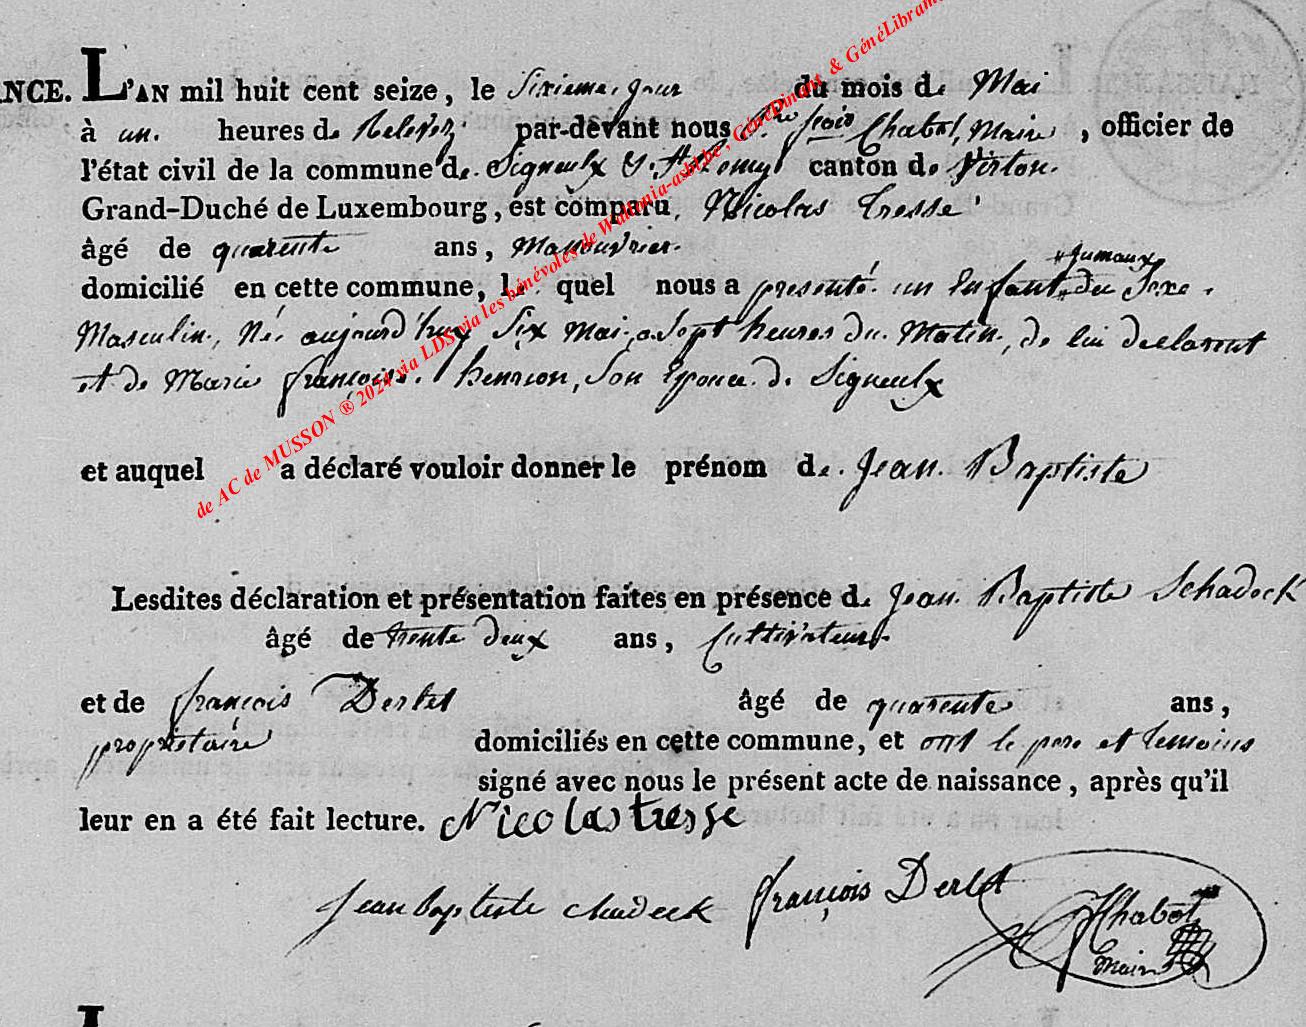 ANCE. L'AN mil huit cent seize, le Sixieme jour du mois de Mai
à un heures de Relevez par-devant nous fcois Chabot, Maire, officier de
l'état civil de la commune de Signeulx & St Remy canton de Virton.
Grand-Duché de Luxembourg, est comparu, Nicolas Tresse
âgé de quarente ans, Manouvrier.
*Jumaux
domicilié en cette commune, le quel nous a presenté un Enfant * du Sexe
Masculin, Né aujourd'huy Six Mai a Sept heures du Matin, de lui declarent
et de Marie françoise henrion, Son Epouce de Signeulx
et auquel a déclaré vouloir donner le prénom de Jean Baptiste
Lesdites déclaration et présentation faites en présence de Jean Baptiste Schadeck
âgé de trente deux ans, Cultivateur.
et de françois Derlet âgé de quarente ans,
propriétaire domiciliés en cette commune, et ont le pere et temoins
signé avec nous le présent acte de naissance, après qu'il
leur en a été fait lecture. Nicolas tresse
Jean baptiste chadeck françois Derlet Chabot
Maire
de AC de MUSSON ® 2024 via LDS via les bénévoles de Wallonia-asbl.be, GénéDinant & GénéLibram